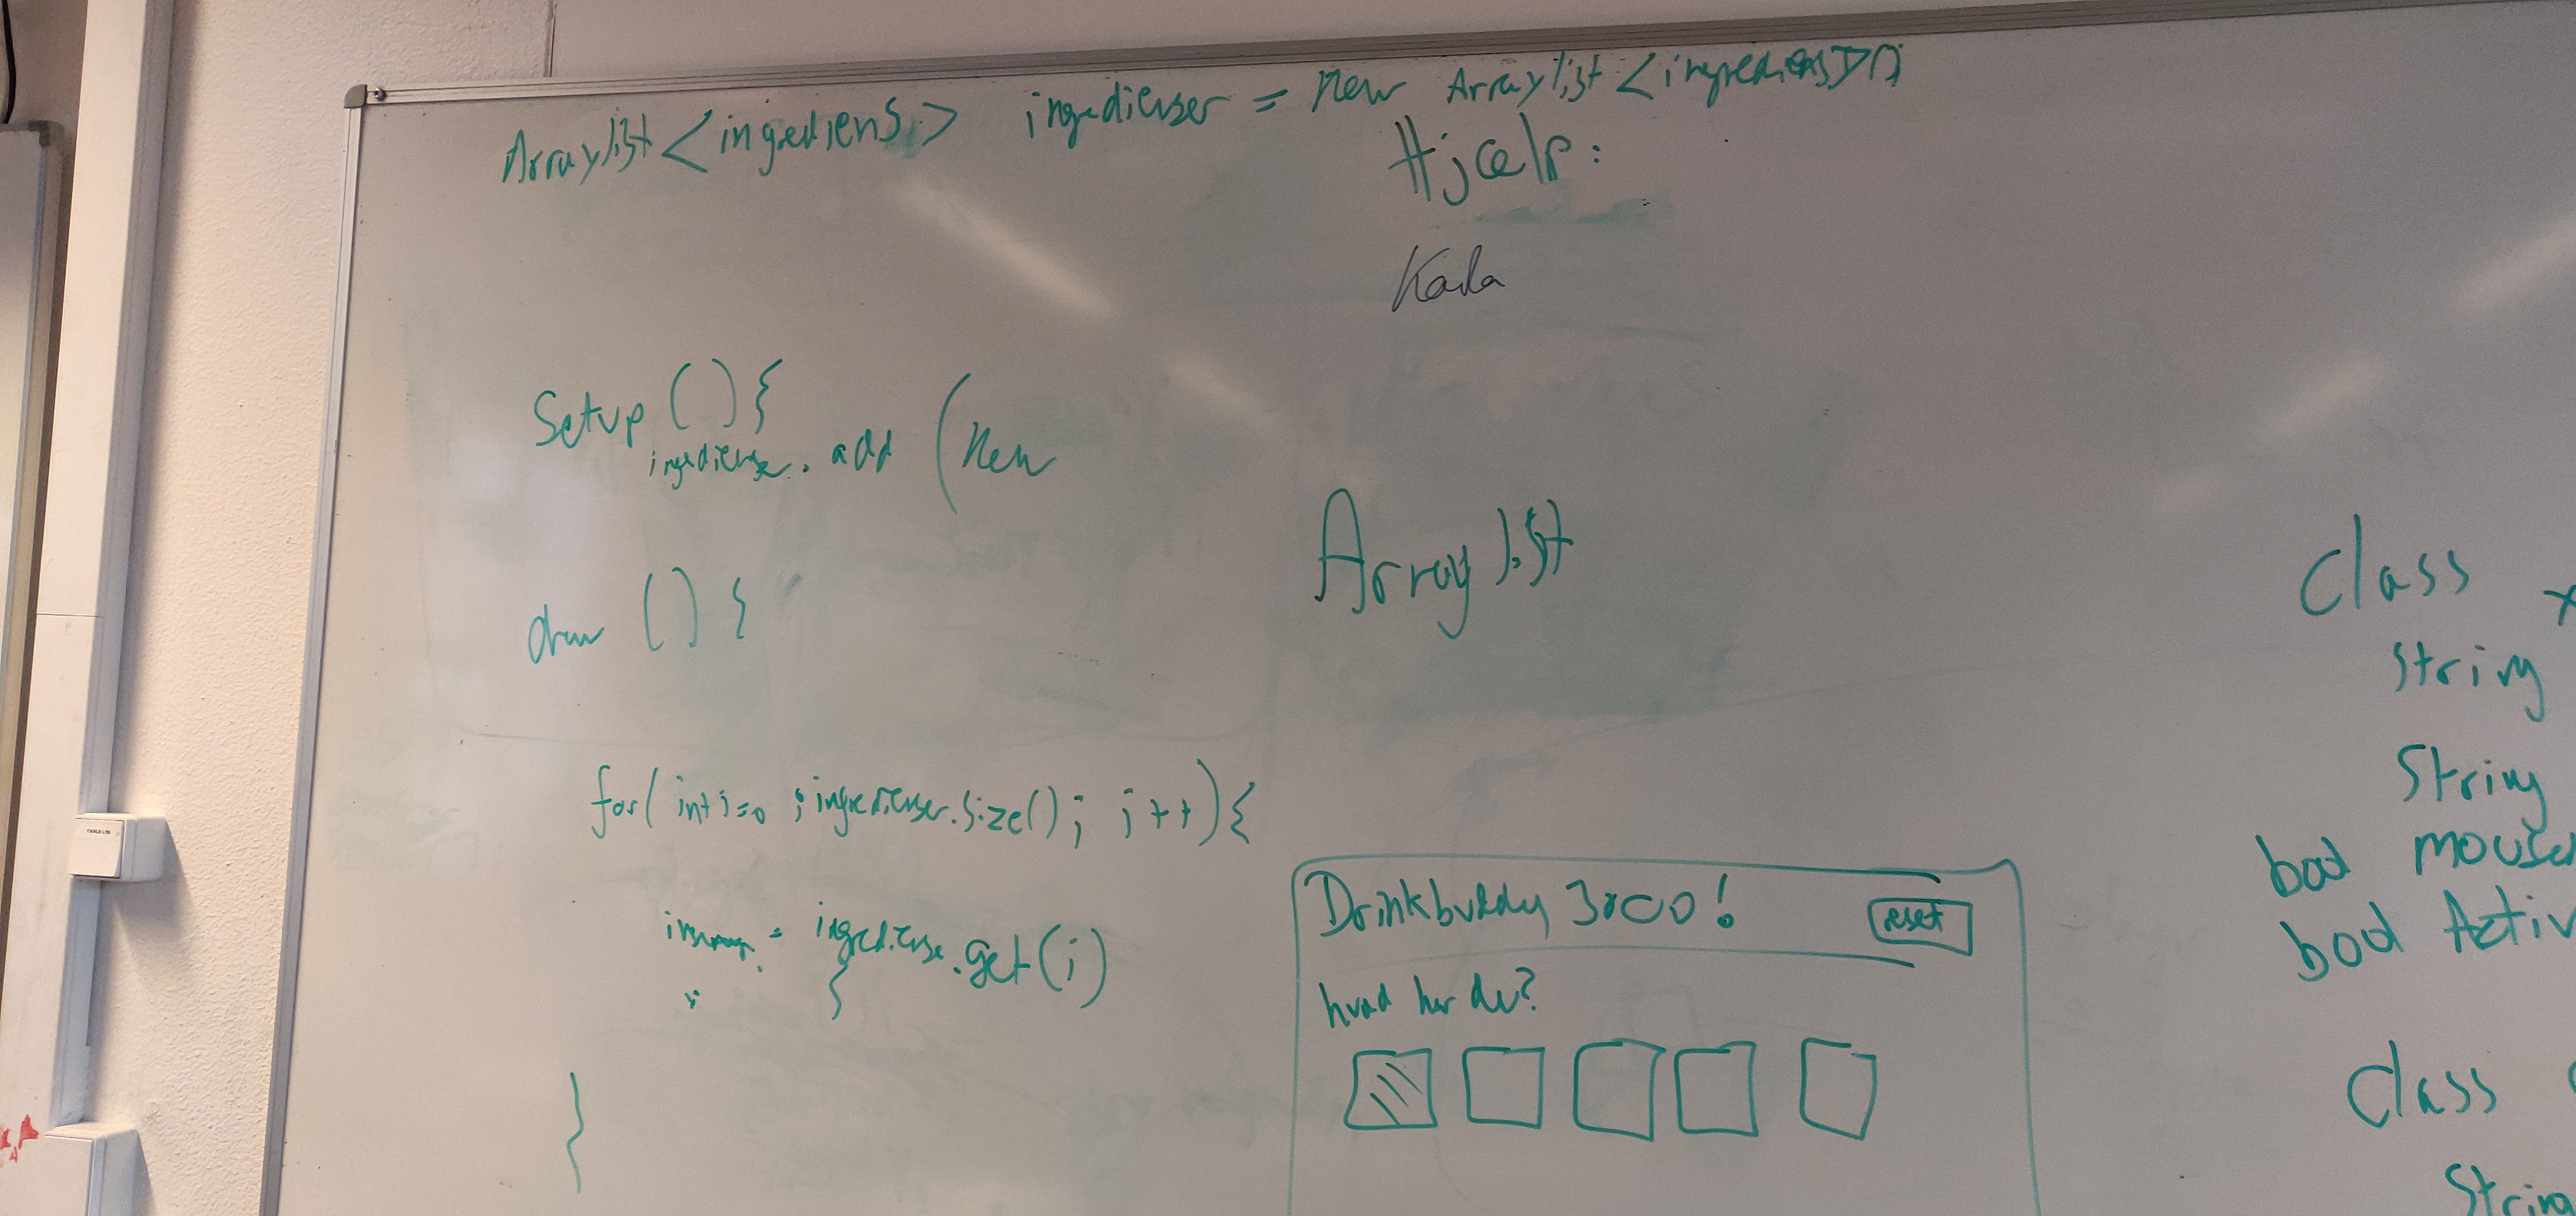 Arraylist <ingrediens> ingredienser = new Arraylist <ingrediens>();
Hjælp:
Karla
Setup () {
ingredienser. add (new
Arraylist
draw () {
for( int i=0 ; ingredienser.size(); i++) {
= ingredienser.get(i)
}
}
Drinkbuddy 3000!
reset
hvad har du?
Class
String
String
bool mouse
bool Activ
Class
String